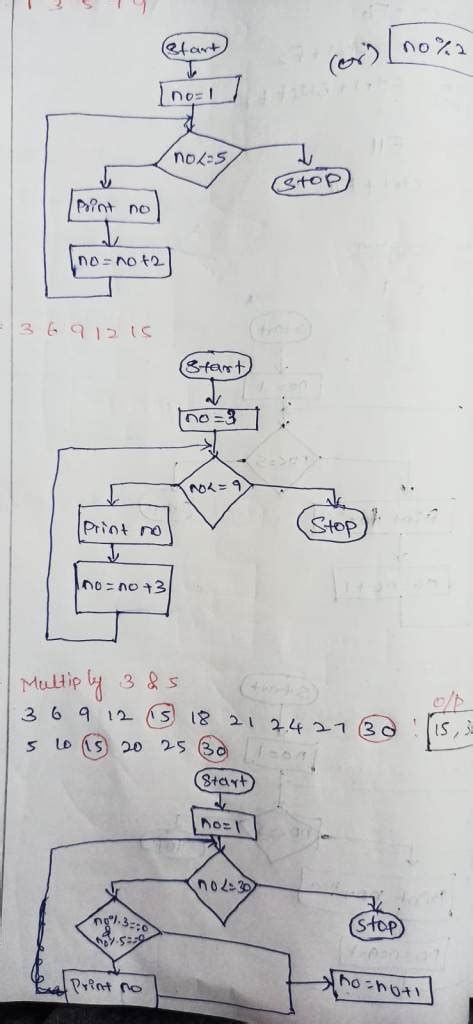 1 3 5 7 9
Start
(or) no%2
no=1
no<=5
Stop
Print no
no=no+2
3 6 9 12 15
Start
no=3
no<=9
Print no
Stop
no=no+3
Multiply 3 & 5
O/P
3 6 9 12 15 18 21 24 27 30 : 15, 30
5 10 15 20 25 30
Start
no=1
no<=30
no%3==0
&
no%5==0
Stop
Print no
no=no+1